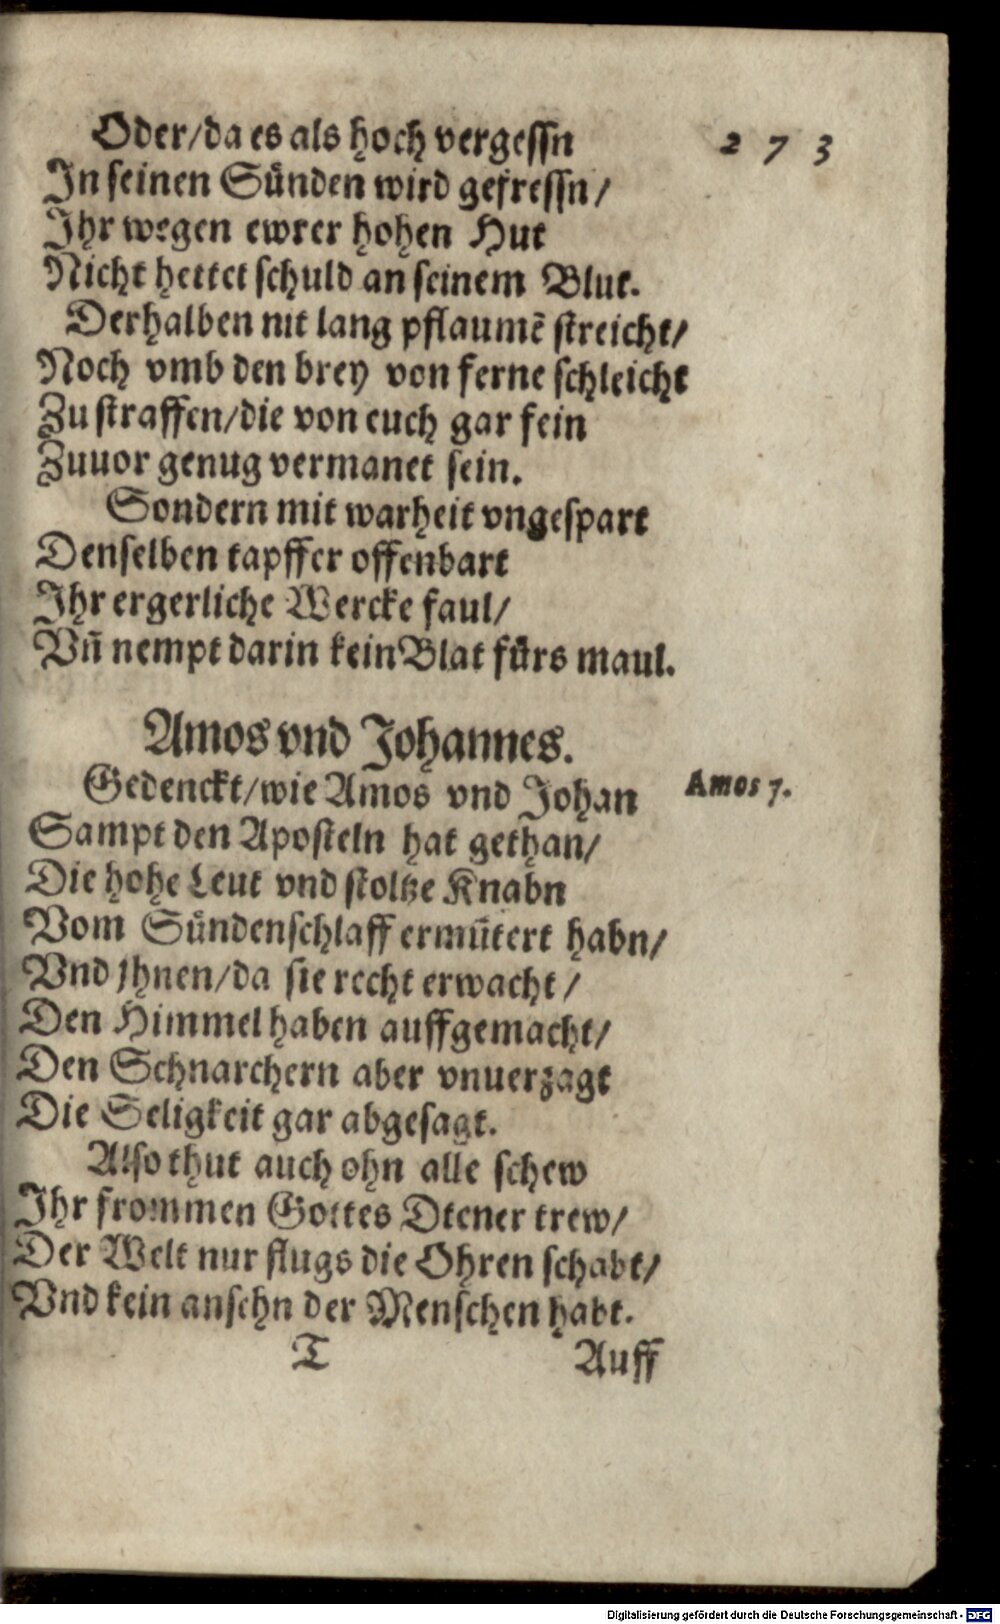 Oder/da es als hoch vergessn
273
In seinen Sünden wird gefressn/
Ihr wegen ewrer hohen Hut
Nicht hettet schuld an seinem Blut.
Derhalben nit lang pflaumẽ streicht/
Noch vmb den brey von ferne schleicht
Zu straffen/die von euch gar fein
Zuuor genug vermanet sein.
Sondern mit warheit vngespart
Denselben tapffer offenbart
Ihr ergerliche Wercke faul/
Vñ nempt darin kein Blat fürs maul.
Amos vnd Johannes.
Gedenckt/wie Amos vnd Johan
Amos 7.
Sampt den Aposteln hat gethan/
Die hohe Leut vnd stoltze Knabn
Vom Sündenschlaff ermũtert habn/
Vnd jhnen/da sie recht erwacht/
Den Himmel haben auffgemacht/
Den Schnarchern aber vnuerzagt
Die Seligkeit gar abgesagt.
Also thut auch ohn alle schew
Ihr frommen Gottes Diener trew/
Der Welt nur flugs die Ohren schabt/
Vnd kein ansehn der Menschen habt.
T
Auff
Digitalisierung gefördert durch die Deutsche Forschungsgemeinschaft - DFG